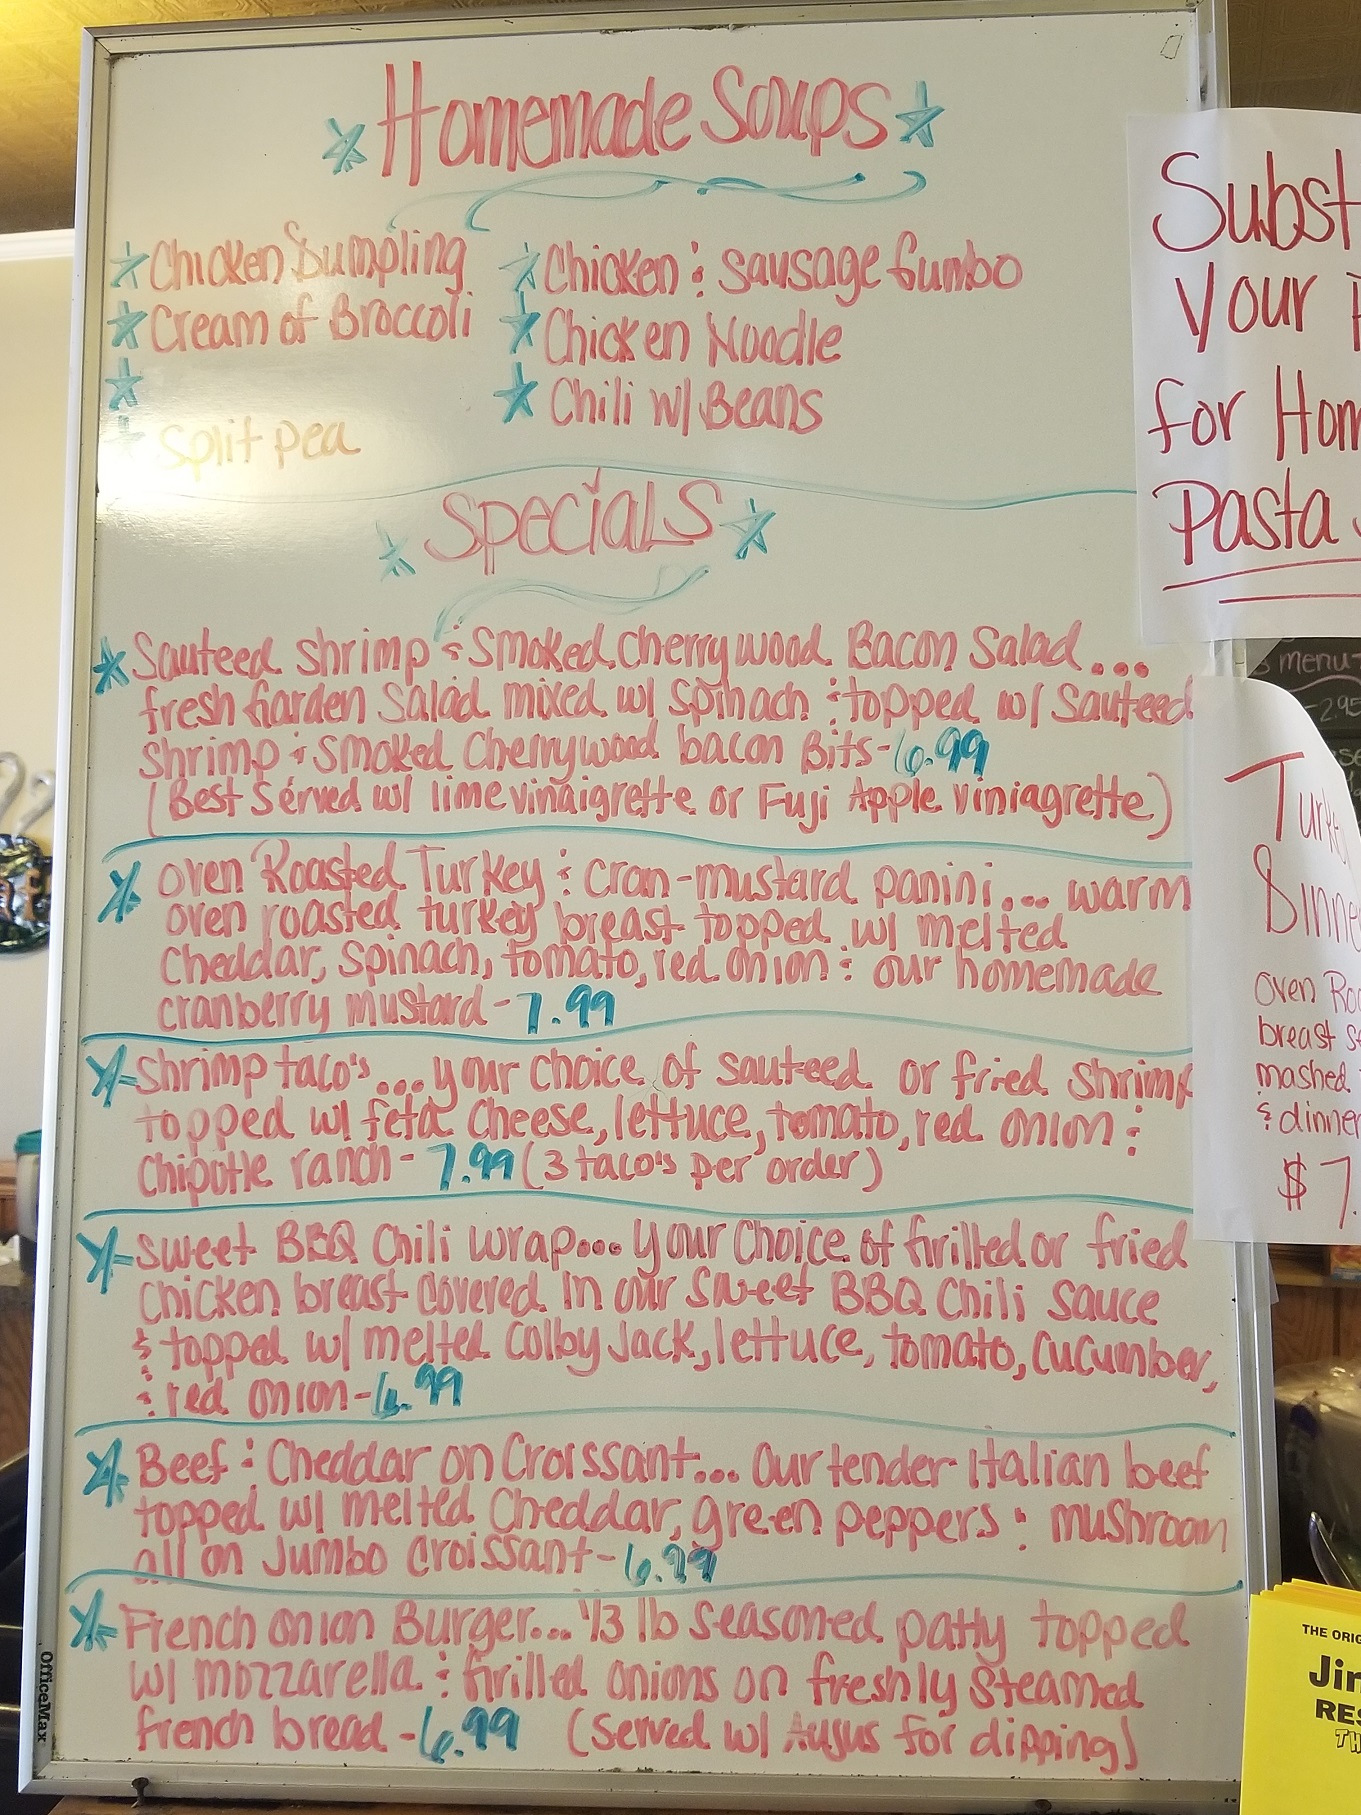 Homemade Soups
Chicken Dumpling
Cream of Broccoli
Split pea
Chicken & Sausage Gumbo
Chicken Noodle
Chili w/ Beans
Specials
Sauteed shrimp & Smoked Cherrywood Bacon Salad...
fresh Garden Salad mixed w/ Spinach & topped w/ Sauteed
Shrimp & Smoked Cherrywood bacon Bits-6.99
(Best Served w/ lime vinaigrette or Fuji Apple viniagrette)
Oven Roasted Turkey & Cran-mustard panini... warm
oven roasted turkey breast topped w/ melted
Cheddar, Spinach, tomato, red onion & our homemade
cranberry mustard-7.99
Shrimp taco's...your choice of sauteed or fried Shrimp
topped w/ feta Cheese, lettuce, tomato, red onion &
Chipotle ranch-7.99 (3 taco's per order)
Sweet BBQ Chili wrap...your Choice of Grilled or fried
Chicken breast covered in our Sweet BBQ Chili Sauce
& topped w/ melted Colby Jack, lettuce, tomato, cucumber,
& red onion-6.99
Beef & Cheddar on Croissant... Our tender Italian beef
topped w/ melted Cheddar, green peppers & mushroom
all on Jumbo Croissant-6.99
French onion Burger... 1/3 lb seasoned patty topped
w/ mozzarella & Grilled onions on freshly Steamed
french bread-6.99 (Served w/ Aujus for dipping)
OfficeMax
Subst
your
for Hom
Pasta
menu
2.95
Turkey
Dinne
oven Ro
breast
mashed
& dinner
$7.
THE ORIG
Jim
RES
TH